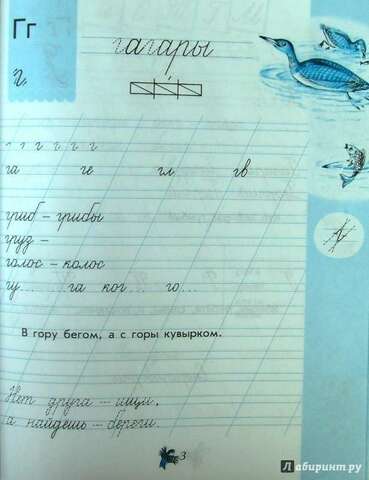 Гг
гагары
г
г г г г г г
га ге гл гв
гриб – грибы
груз –
голос – колос
гу... га ког... го...
В гору бегом, а с горы кувырком.
Нет друга – ищи,
а найдёшь – береги.
3
Лабиринт.ру